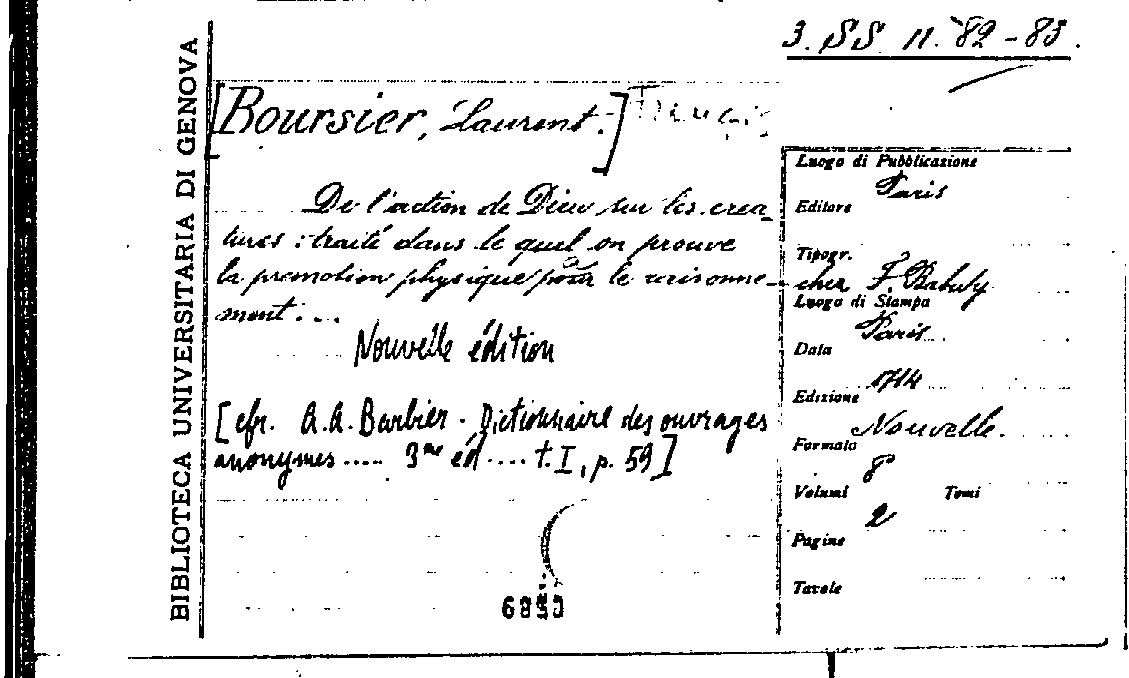 BIBLIOTECA UNIVERSITARIA DI GENOVA
3. SS n. 82-83.
[Boursier, Laurent.]
De l'action de Dieu sur les crea_
tures : traité dans le quel on prouve
la promotion physique pour le raisonne_
ment. ...
Nouvelle édition
[cfr. A.A. Barbier - Dictionnaire des ouvrages
anonymes ..... 3me éd .... t. I, p. 59]
Luogo di Pubblicazione
Paris
Editore
Tipogr.
chez F. Babuty
Luogo di Stampa
Paris
Data
1714
Edizione
Nouvelle.
Formato
8
Volumi Tomi
2
Pagine
Tavole